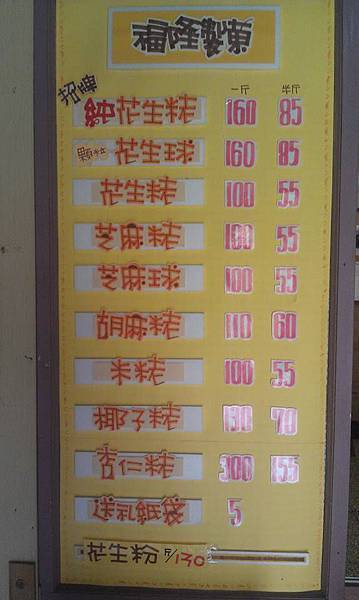 福隆製菓
招牌 一斤 半斤
純花生糖 160 85
顆粒 花生球 160 85
花生糖 100 55
芝麻糖 100 55
芝麻球 100 55
胡麻糖 110 60
米糖 100 55
椰子糖 130 70
杏仁糖 300 155
送礼紙袋 5
花生粉 斤/130